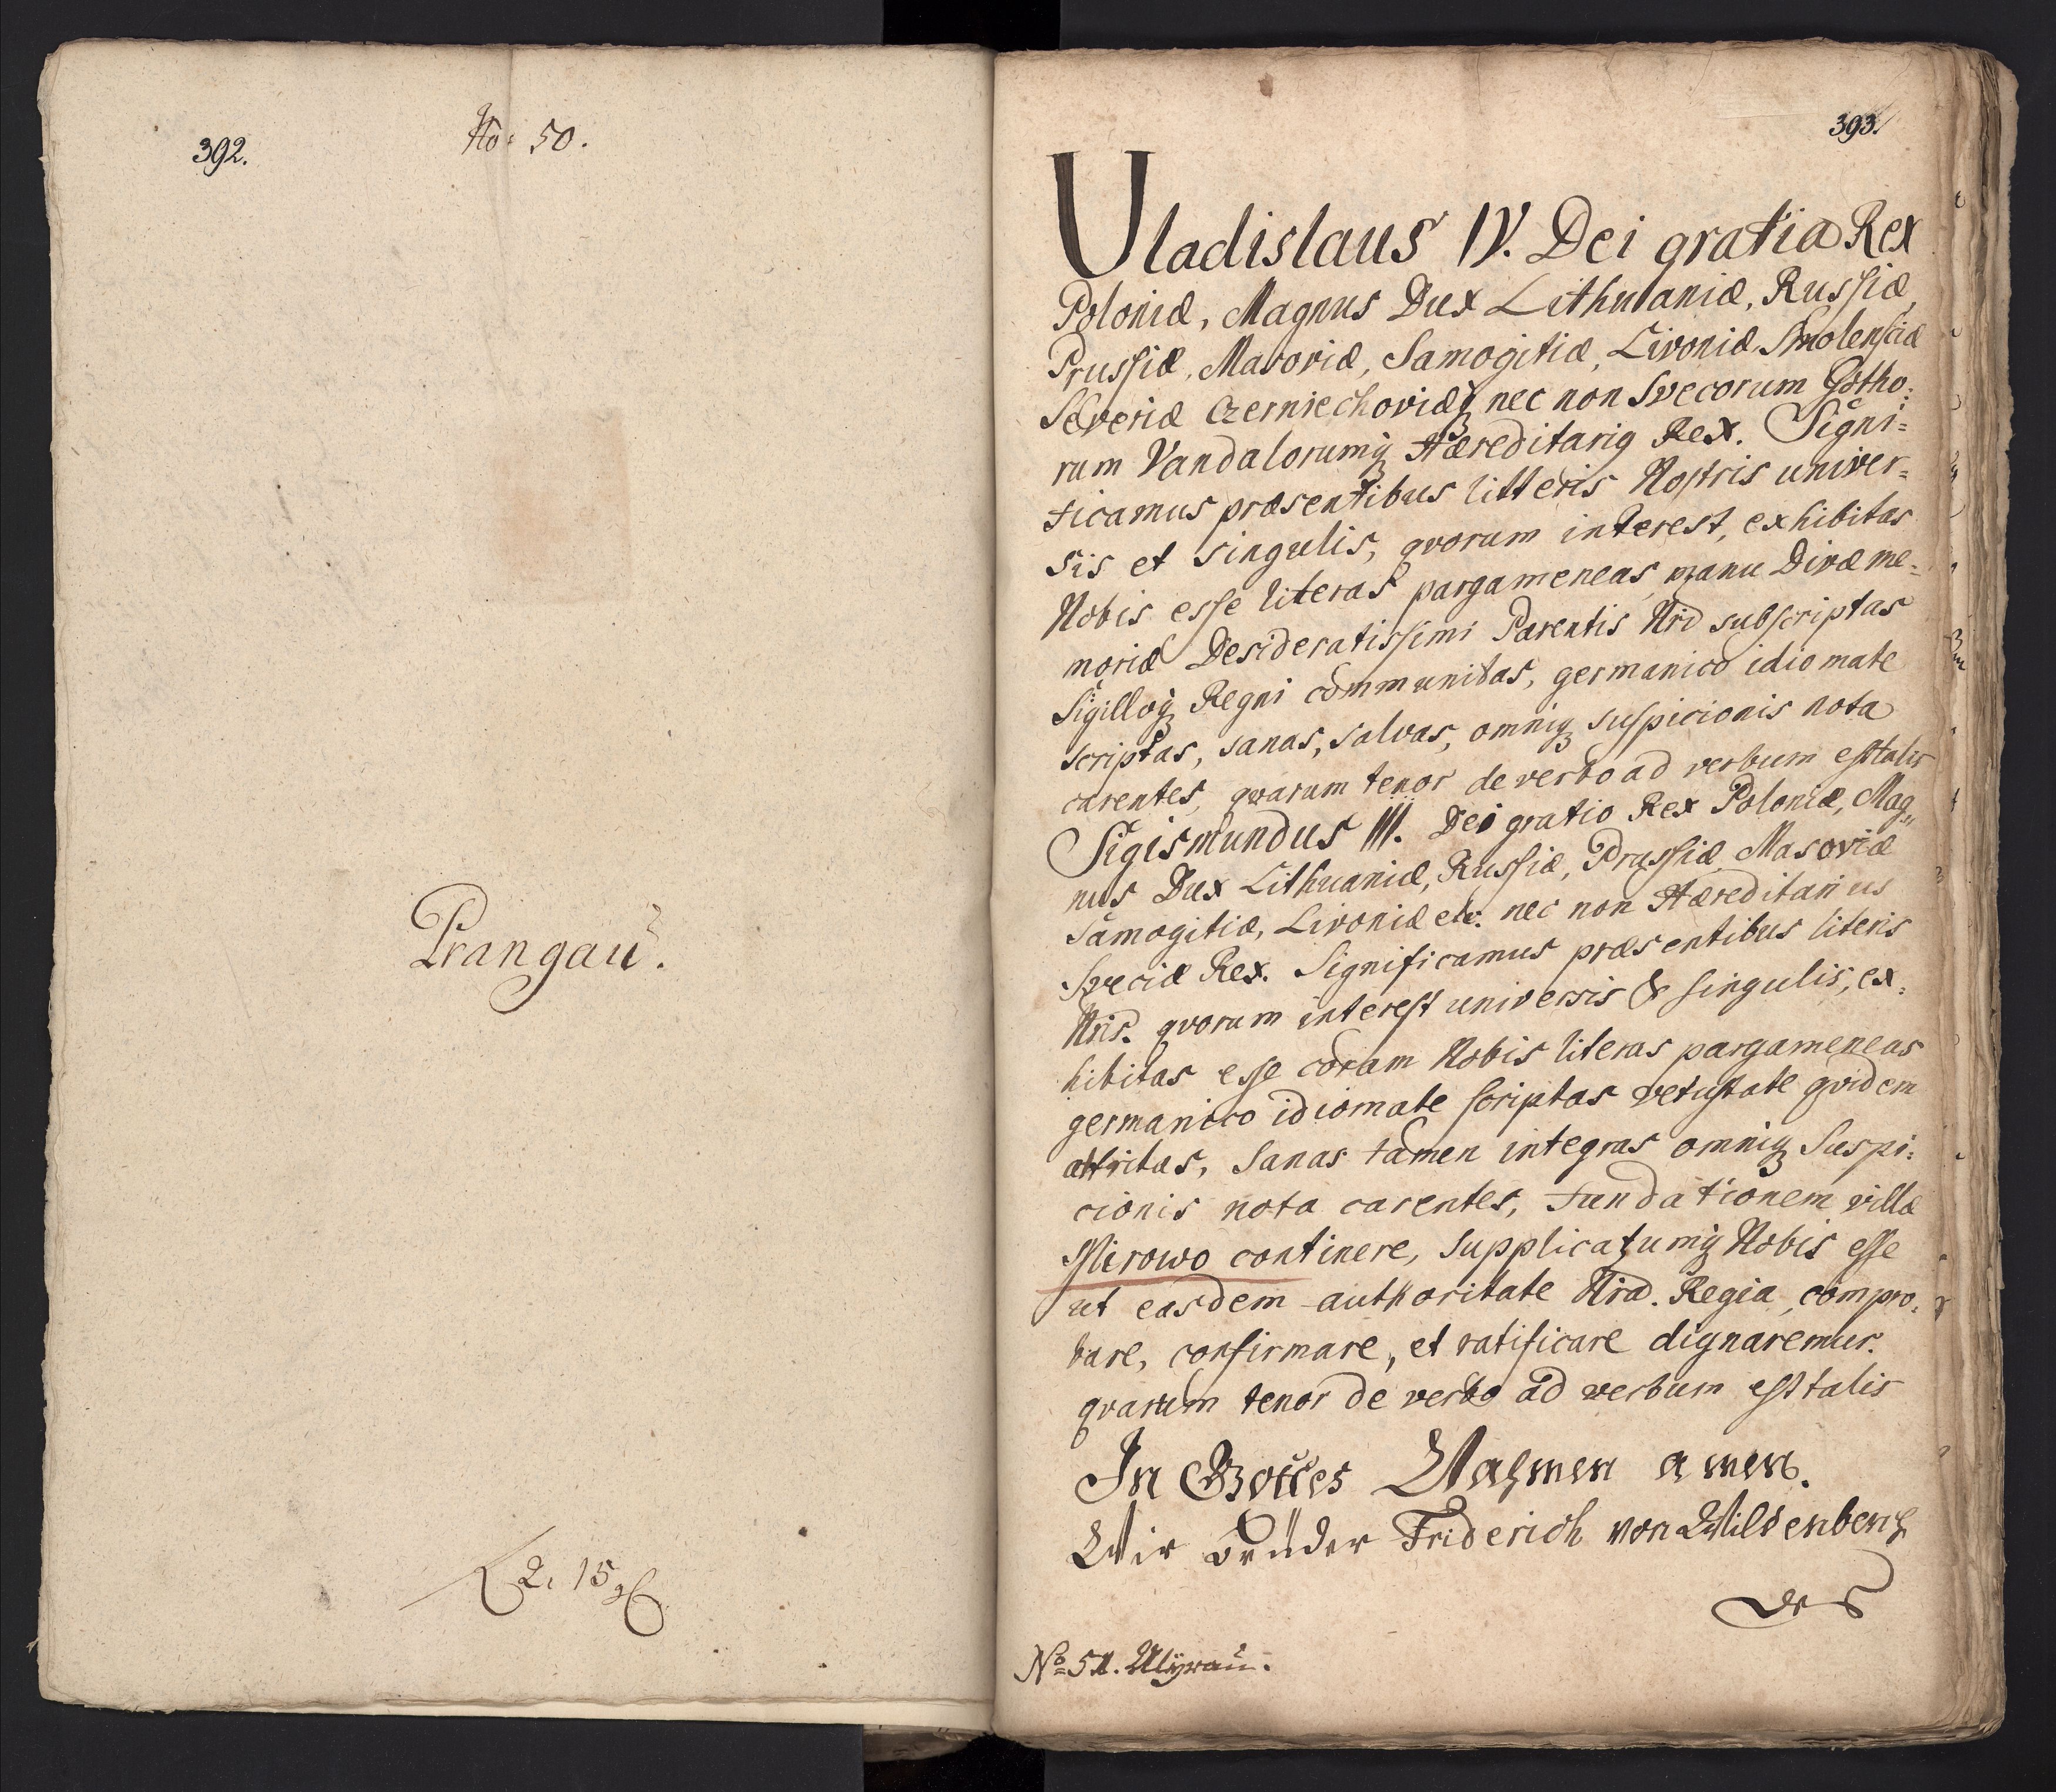 392.
No: 50.
Prangau.
2. 15
393.
Uladislaus IV. Dei gratia Rex
Poloniæ, Magnus Dux Lithuaniæ, Russiæ,
Prussiæ, Masoviæ, Samogitiæ, Livoniæ Smolensciæ
Severiæ Czerniechoviæq nec non Svecorum Gotho:
rum Vandalorumq Hæreditarig Rex. Signi=
ficamus præsentibus litteris Nostris univer=
sis et singulis, qvorum interest, exhibitas
Nobis esse literas pargameneas manu Divæ me=
moriæ Desideratissimi Parentis Nri subscriptas
Sigilloq Regni communitas, germanico idiomate
scriptas, sanas, salvas, omniq suspicionis nota
carentes, qvarum tenor de verbo ad verbum est talis
Sigismundus III. Dei gratio Rex Poloniæ, Mag„
nus Dux Lithuaniæ, Russiæ, Prussiæ Masoviæ
Samogitiæ, Livoniæ etc. nec non Hæreditarius
Sveciæ Rex. Significamus præsentibus literis
Nris. qvorum interest universis & singulis, ex:
hibitas esse coram Nobis literas pargameneas
germanico idiomate scriptas vetustate qvidem
attritas, Sanas tamen integras omniq Suspi:
cionis nota carentes, Fundationem villæ
Mirowo continere, supplicatumq Nobis esse
ut easdem authoritate Nra. Regia compro:
bare, confirmare, et ratificare dignaremur.
qvarum tenor de verbo ad verbum est talis
In Gottes Nahmen amen.
Wir Brüder Friderich von Wildenberg
des
No 51. Myrau.